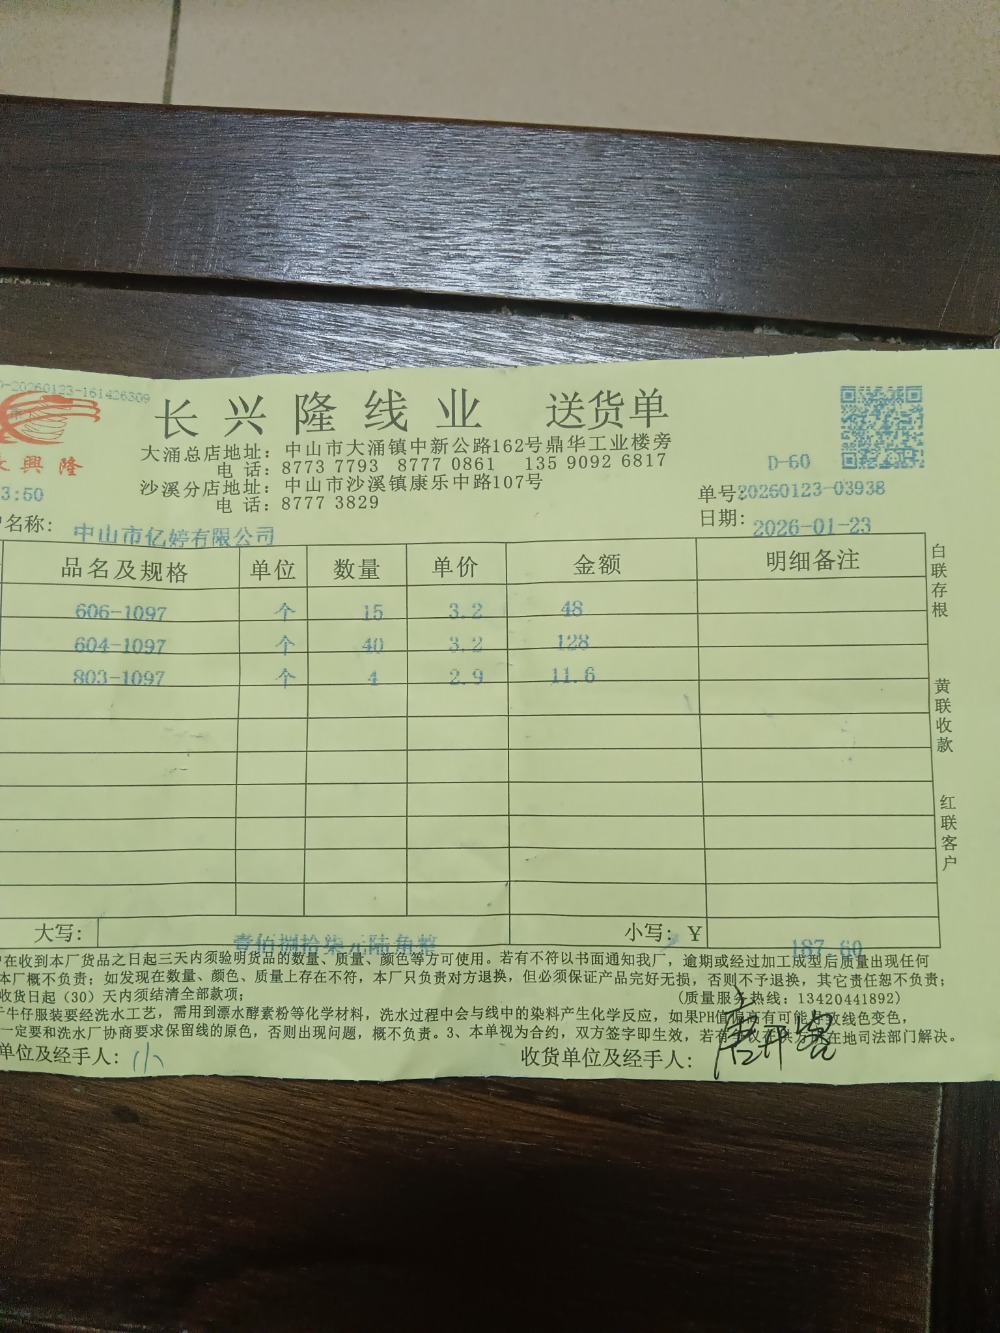 0-20260123-161426309
長興隆
长兴隆线业 送货单
大涌总店地址：中山市大涌镇中新公路162号鼎华工业楼旁
电 话：8773 7793 8777 0861 135 9092 6817
沙溪分店地址：中山市沙溪镇康乐中路107号
电 话：8777 3829
D-60
3:50
单号:20260123-03938
名称: 中山市亿婷有限公司
日期: 2026-01-23
品名及规格 单位 数量 单价 金额 明细备注
606-1097 个 15 3.2 48
604-1097 个 40 3.2 128
803-1097 个 4 2.9 11.6
白联存根
黄联收款
红联客户
大写: 壹佰捌拾柒元陆角整 小写: ¥ 187.60
在收到本厂货品之日起三天内须验明货品的数量、质量、颜色等方可使用。若有不符以书面通知我厂，逾期或经过加工成型后质量出现任何
本厂概不负责；如发现在数量、颜色、质量上存在不符，本厂只负责对方退换，但必须保证产品完好无损，否则不予退换，其它责任恕不负责；
收货日起（30）天内须结清全部款项； (质量服务热线：13420441892)
牛仔服装要经洗水工艺，需用到漂水酵素粉等化学材料，洗水过程中会与线中的染料产生化学反应，如果PH值偏高有可能导致线色变色，
一定要和洗水厂协商要求保留线的原色，否则出现问题，概不负责。3、本单视为合约，双方签字即生效，若有争议在供方所在地司法部门解决。
单位及经手人: 小 收货单位及经手人: